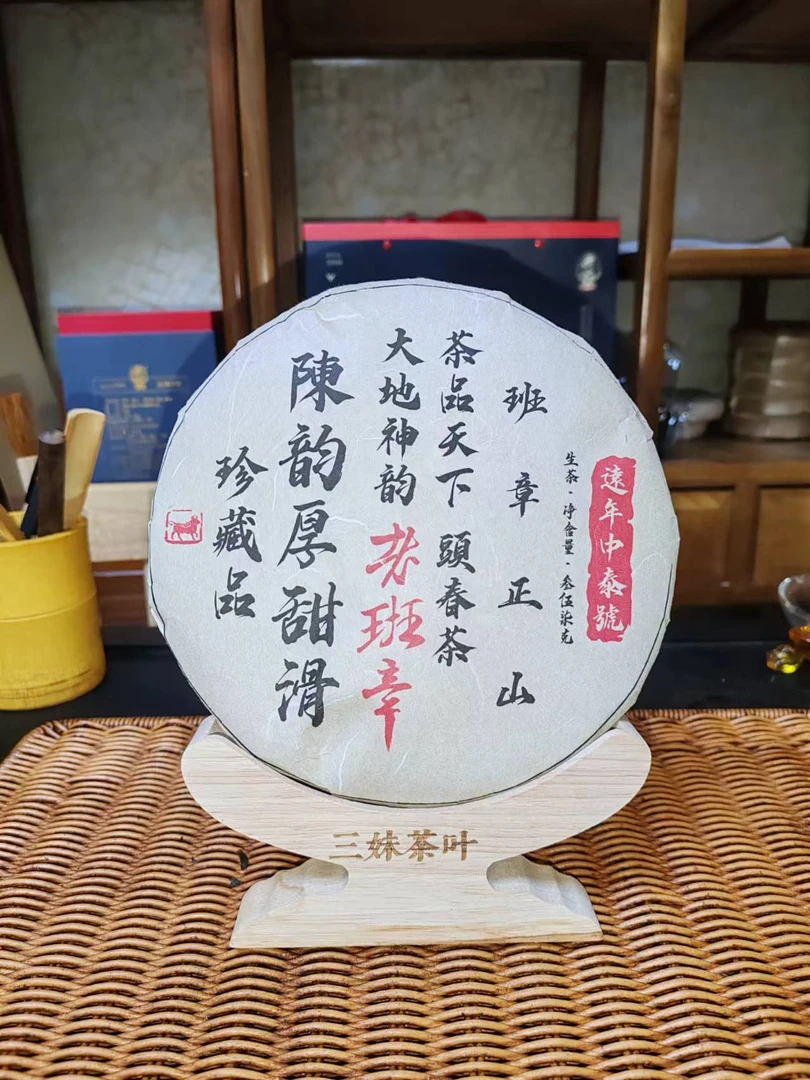 遠年中泰號
生茶·净含量·叁伍柒克
班章正山
茶品天下 頭春茶
大地神韵 老班章
陳韵厚甜滑
珍藏品
三妹茶叶